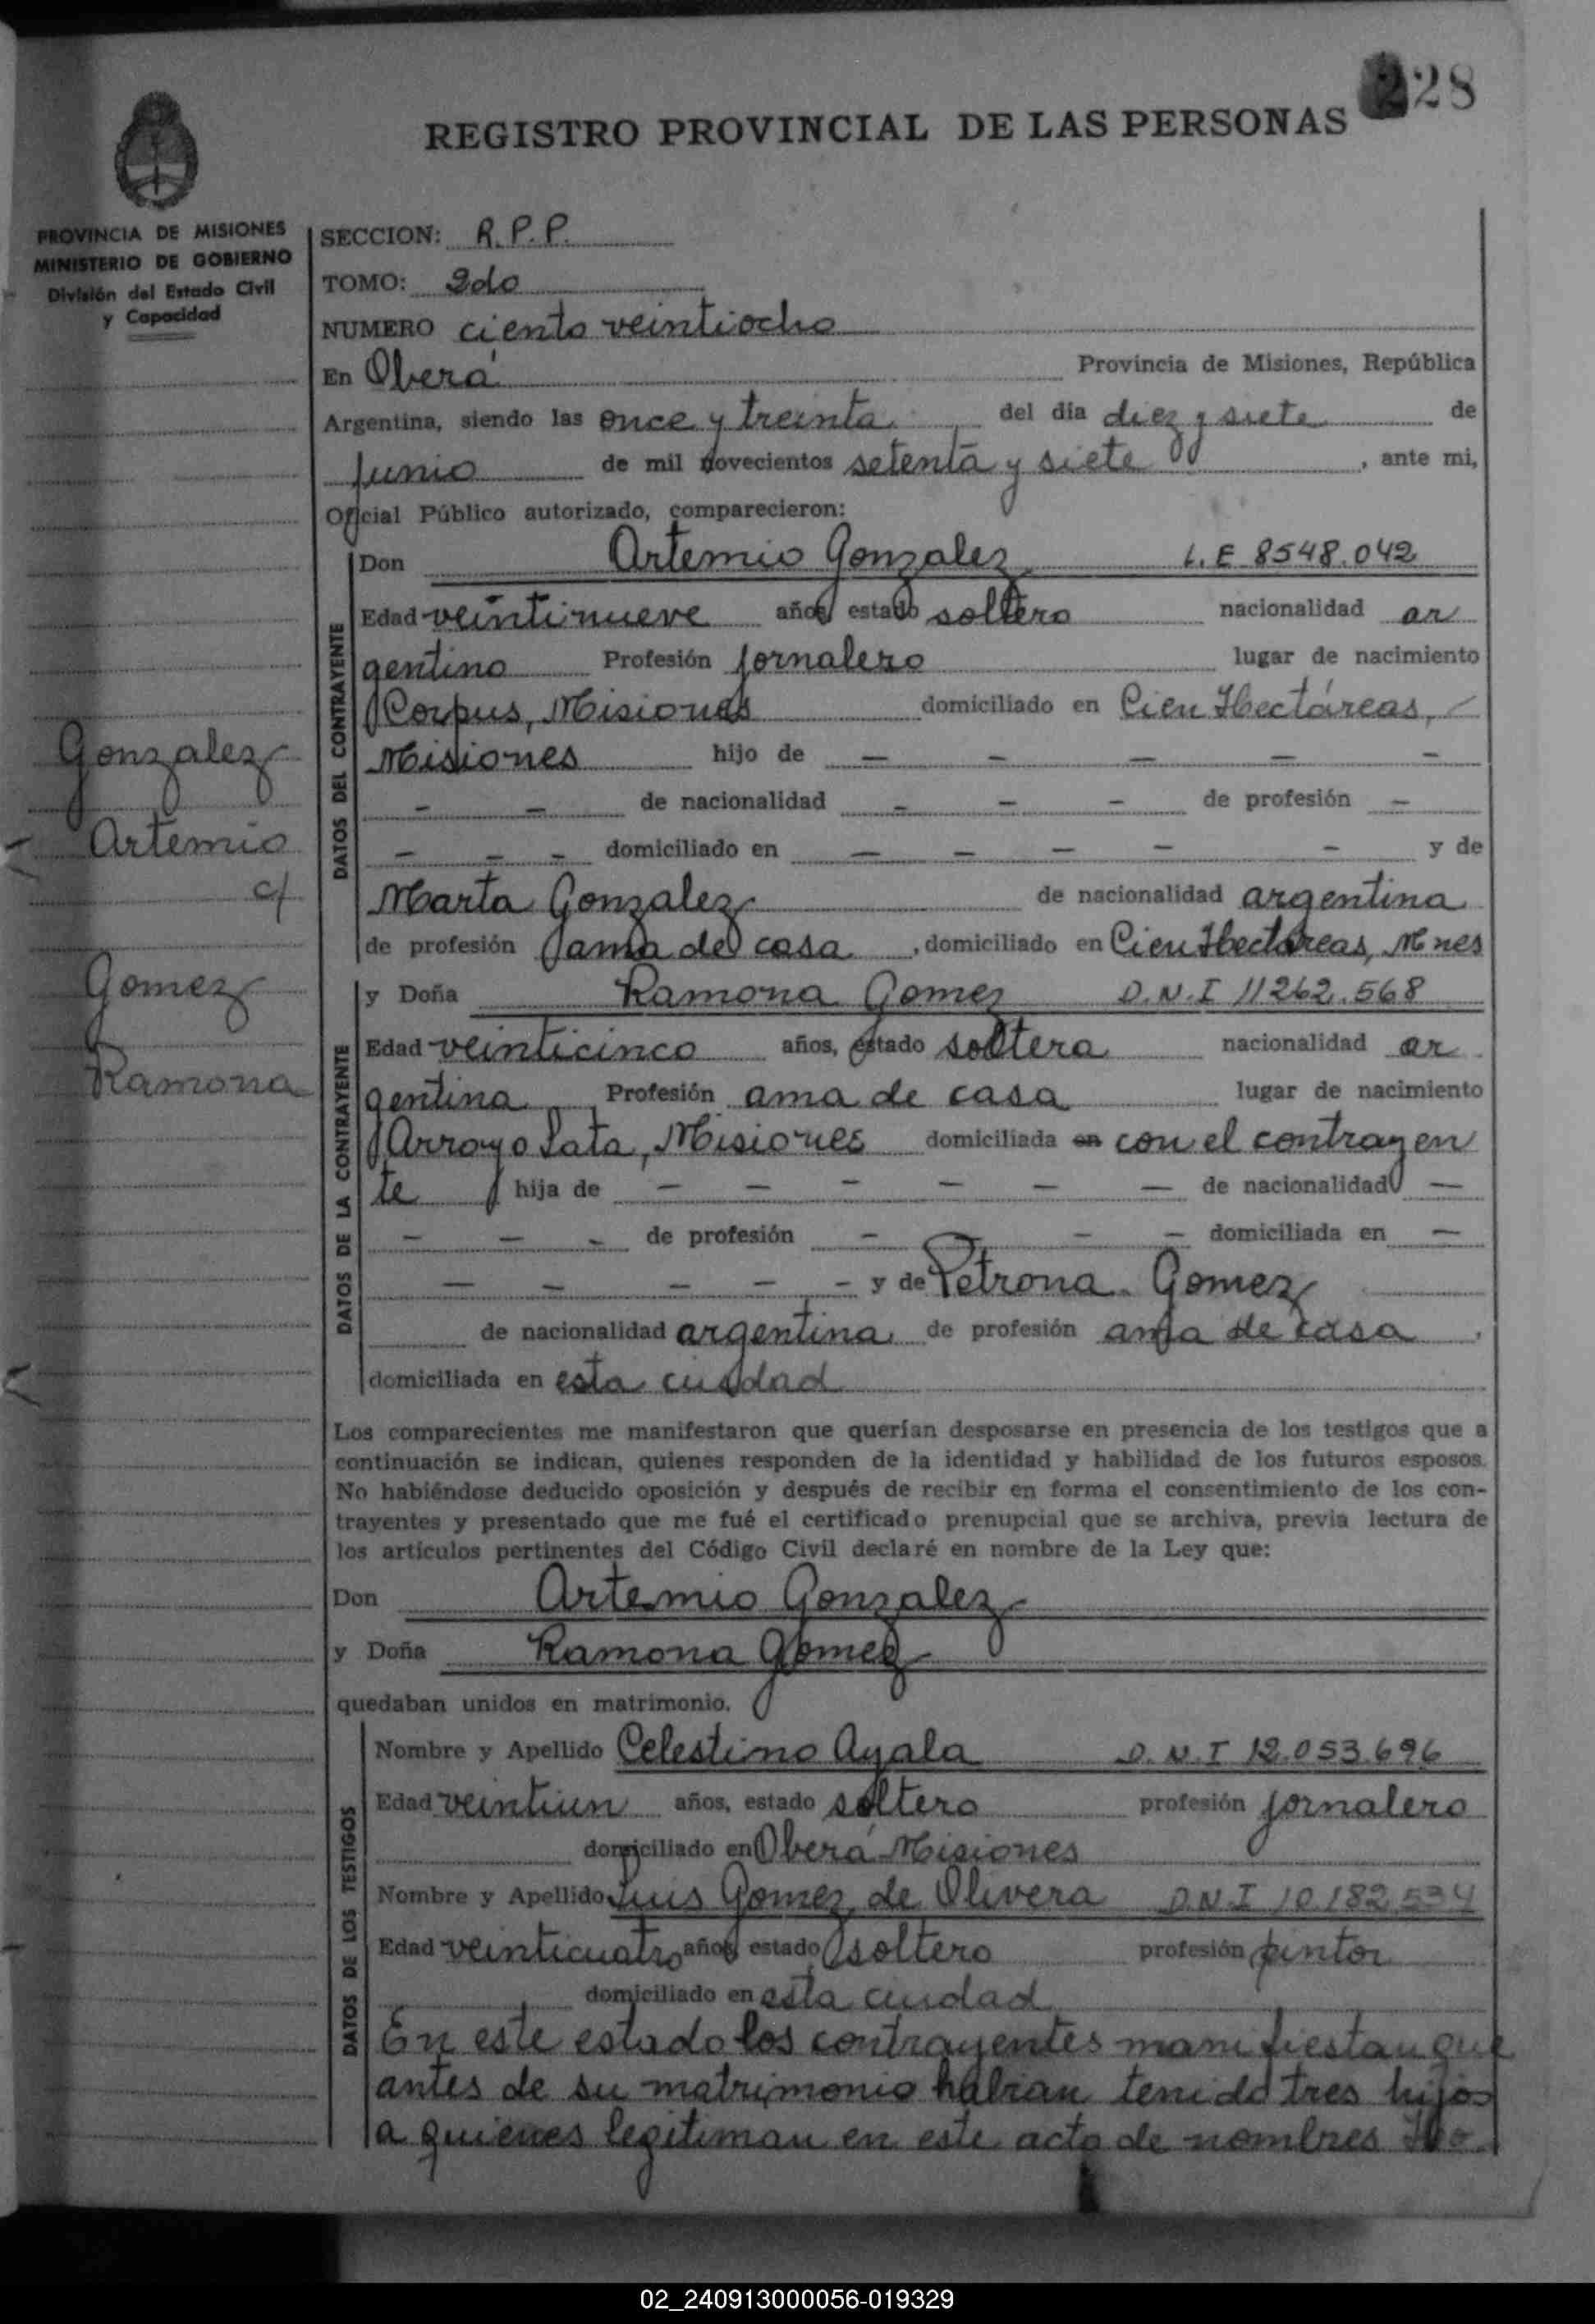 228
REGISTRO PROVINCIAL DE LAS PERSONAS
PROVINCIA DE MISIONES
MINISTERIO DE GOBIERNO
División del Estado Civil
y Capacidad
SECCION: R.P.P.
TOMO: 2do
NUMERO ciento veintiocho
En Oberá Provincia de Misiones, República
Argentina, siendo las once y treinta del día diez y siete de
Junio de mil novecientos setenta y siete, ante mi,
Oficial Público autorizado, comparecieron:
DATOS DEL CONTRAYENTE
Don Artemio Gonzalez L.E 8548.042
Edad veintinueve años, estado soltero nacionalidad ar
gentino Profesión jornalero lugar de nacimiento
Corpus, Misiones domiciliado en Cien Hectáreas,
Misiones hijo de — — — — —
— — de nacionalidad — — — de profesión —
— — — domiciliado en — — — — — y de
Marta Gonzalez de nacionalidad argentina
de profesión ama de casa, domiciliado en Cien Hectáreas, Mnes
Gonzalez
Artemio
c/
Gomez
Ramona
DATOS DE LA CONTRAYENTE
y Doña Ramona Gomez D.N.I 11262.568
Edad veinticinco años, estado soltera nacionalidad ar
gentina Profesión ama de casa lugar de nacimiento
Arroyo Lata, Misiones domiciliada en con el contrayen
te hija de — — — — — — de nacionalidad —
— — — de profesión — — — domiciliada en —
— — — — — y de Petrona Gomez
de nacionalidad argentina de profesión ama de casa,
domiciliada en esta ciudad
Los comparecientes me manifestaron que querían desposarse en presencia de los testigos que a
continuación se indican, quienes responden de la identidad y habilidad de los futuros esposos.
No habiéndose deducido oposición y después de recibir en forma el consentimiento de los con-
trayentes y presentado que me fué el certificado prenupcial que se archiva, previa lectura de
los artículos pertinentes del Código Civil declaré en nombre de la Ley que:
Don Artemio Gonzalez
y Doña Ramona Gomez
quedaban unidos en matrimonio.
DATOS DE LOS TESTIGOS
Nombre y Apellido Celestino Ayala D.N.I 12.053.696
Edad veintiun años, estado soltero profesión jornalero
domiciliado en Oberá Misiones
Nombre y Apellido Luis Gomez de Olivera D.N.I 10.182.534
Edad veinticuatro años, estado soltero profesión pintor
domiciliado en esta ciudad
En este estado los contrayentes manifiestan que
antes de su matrimonio habian tenido tres hijos
a quienes legitiman en este acto de nombres
02_240913000056-019329